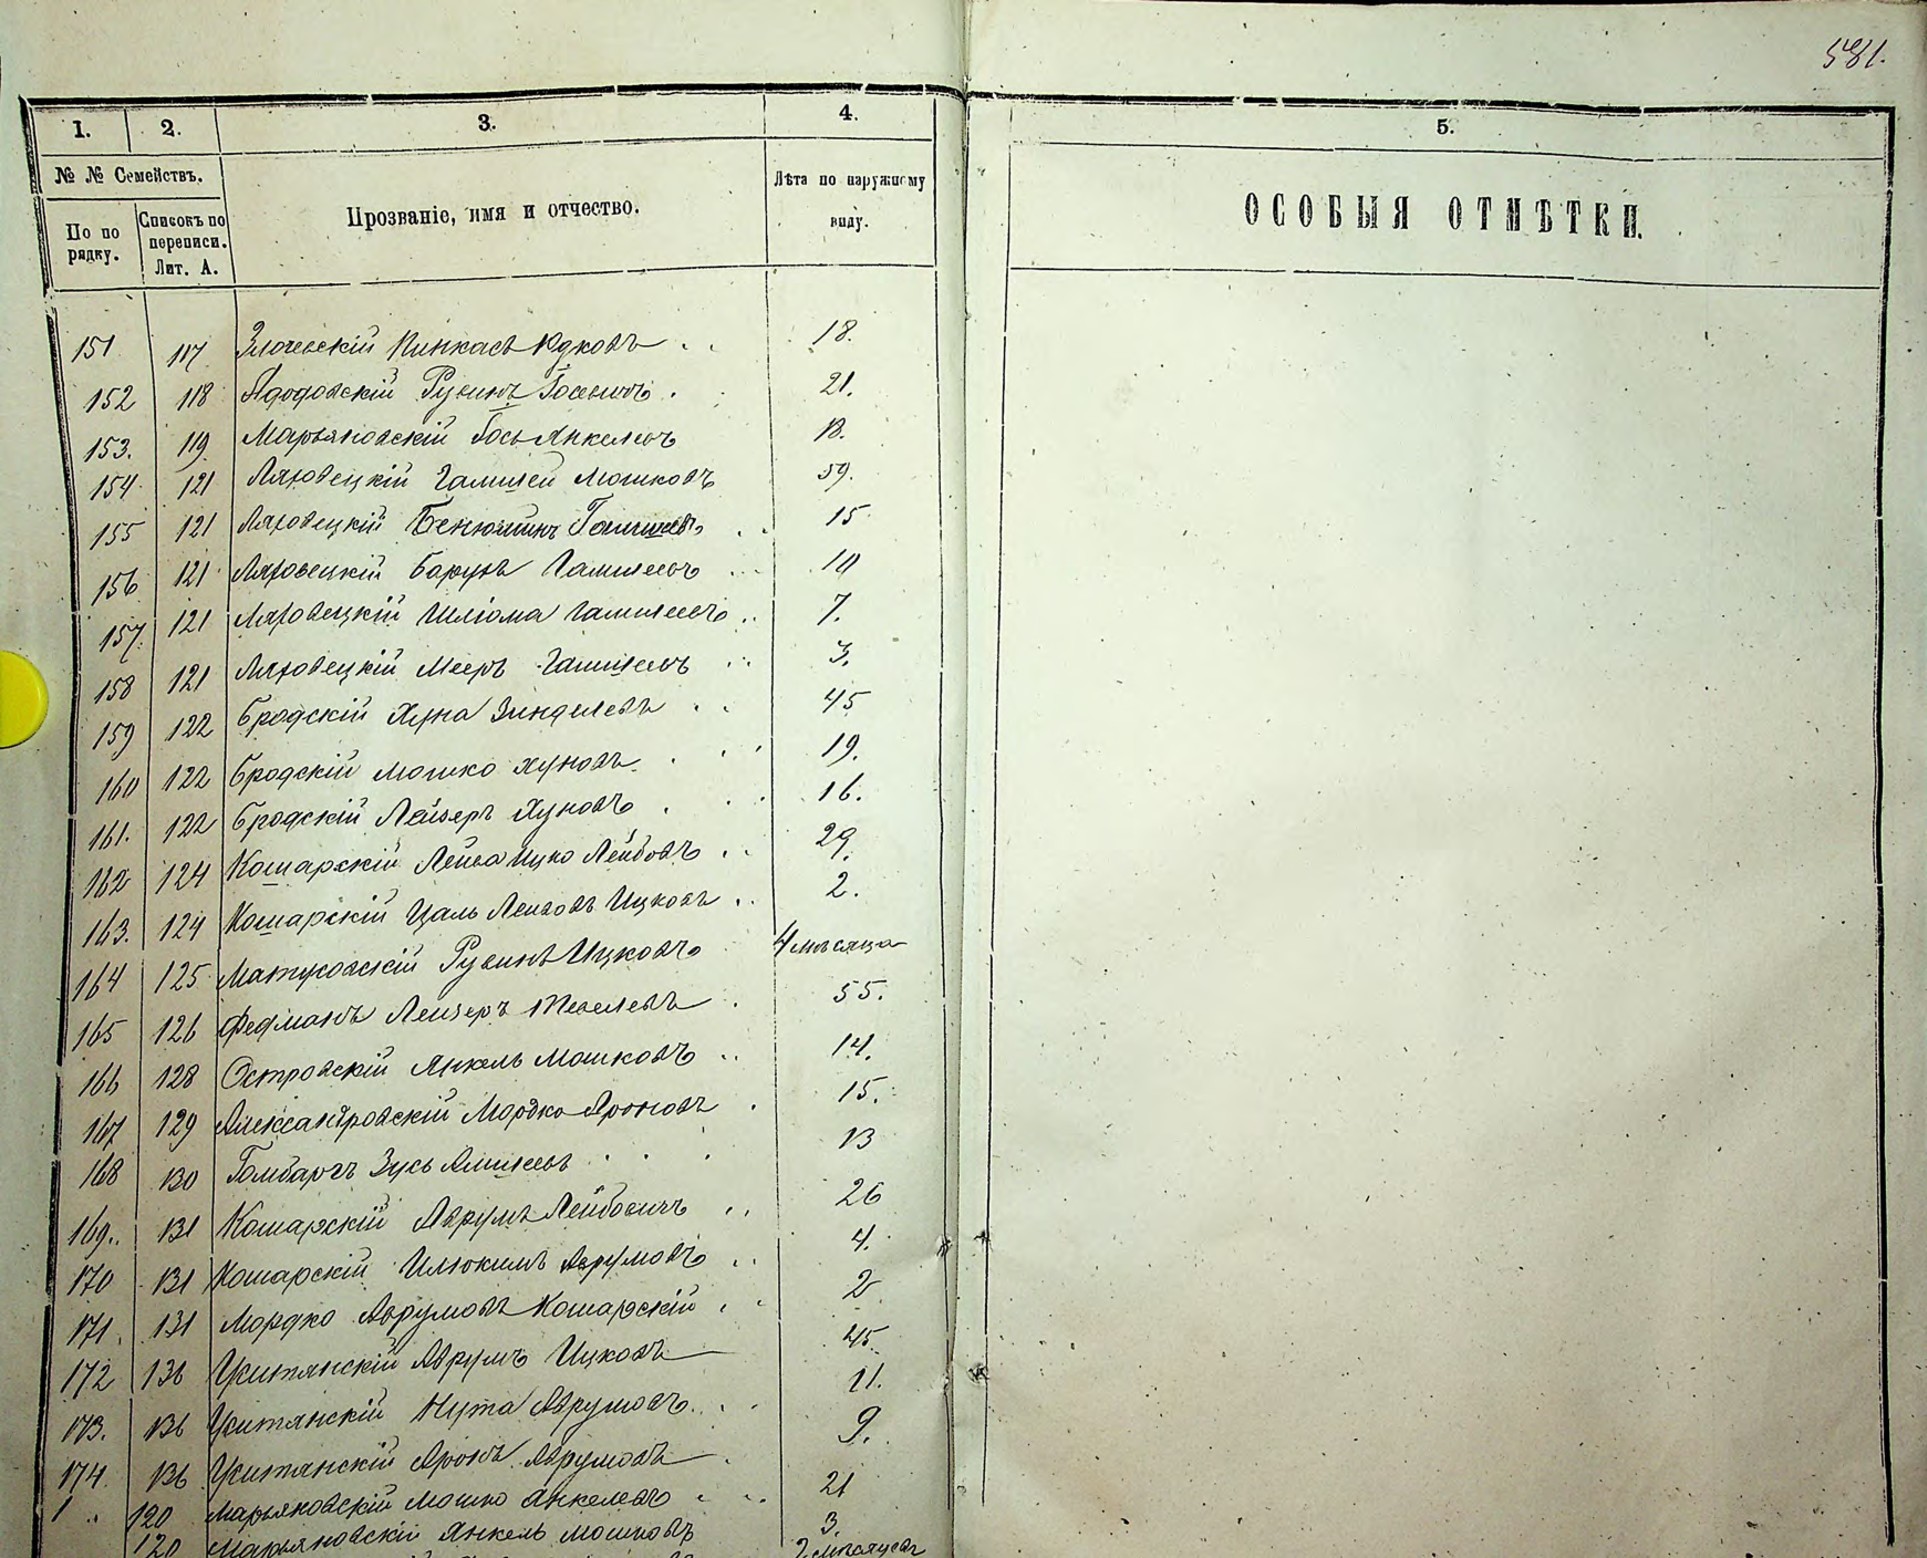 581.
1. 2. 3. 4. 5.
№ № Семействъ.
По по рядку.
Списокъ по переписи. Лит. А.
Прозваніе, имя и отчество.
Лѣта по наружному виду.
ОСОБЫЯ ОТМѢТКИ.
151 117 Пинкасъ Юдковъ 18.
152 118 Рувинъ 21.
153. 119 Марьяновскій Іось Янкелевъ 13.
154 121 Ляховецкій Гамшей Мошковъ 59.
155 121 Ляховецкій Бенюминъ Гамшеевъ 15
156 121 Ляховецкій Борухъ Гамшеевъ 10
157. 121 Ляховецкій Шліома Гамшеевъ 7.
158 121 Ляховецкій Мееръ Гамшеевъ 3.
159 122 Бродскій Хуна Зинделевъ 45
160 122 Бродскій Мошко Хуновъ 19.
161. 122 Бродскій Лейзеръ Хуновъ 16.
162 124 Кошарскій Ицко Лейбовъ 29.
163. 124 Кошарскій Ицковъ 2.
164 125 Матусовскій Рувинъ Ицковъ 4 мѣсяца
165 126 Федманъ Лейзеръ Тевелевъ 55.
166 128 Островскій Янкель Мошковъ 14.
167 129 Александровскій Мордко Ароновъ 15.
168 130 Гомбаргъ Зусь 13
169.. 131 Кошарскій Аврумъ Лейбовичъ 26
170 131 Кошарскій Аврумовъ 4.
171. 131 Мордко Аврумовъ Кошарскій 2
172 136 Аврумъ Ицковъ 45.
173. 136 Нута Аврумовъ 11.
174. 136 Аронъ Аврумовъ 9.
1 120 Марьяновскій Мошко Янкелевъ 21
120 Марьяновскій Янкель Мошковъ 3.
2 мѣсяцевъ